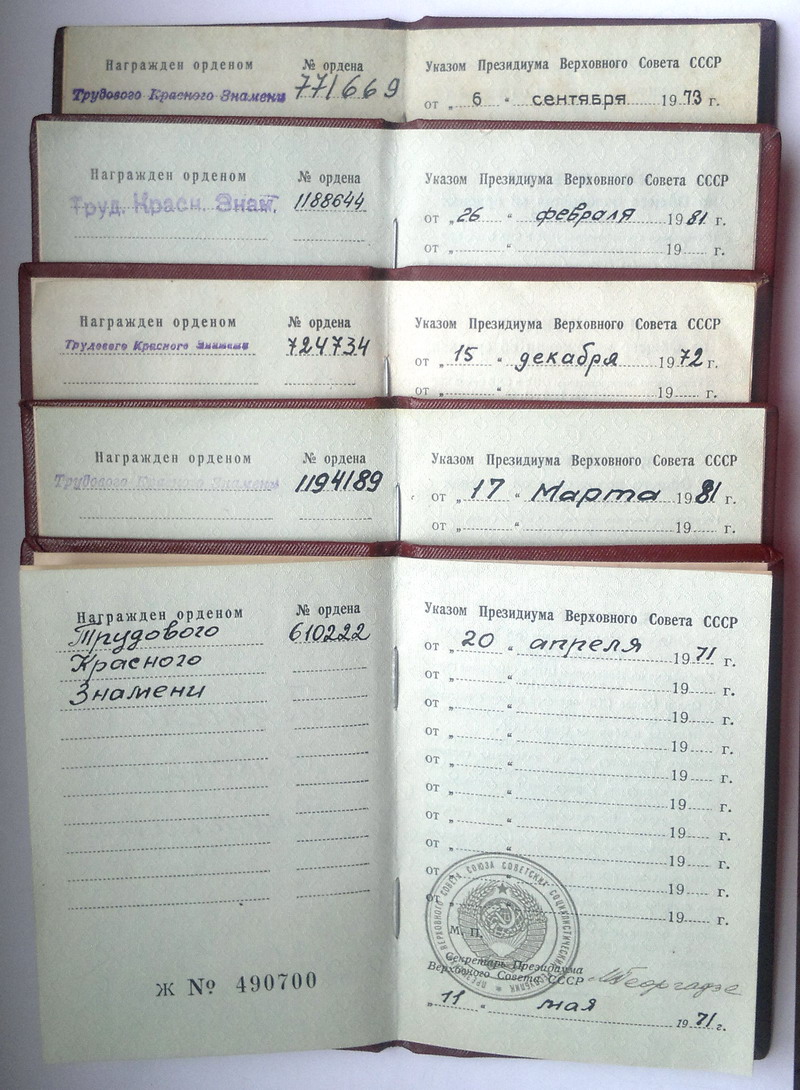 Награжден орденом № ордена
Трудового Красного Знамени 771669
Указом Президиума Верховного Совета СССР
от „ 6 “ сентября 1973 г.
Награжден орденом № ордена
Труд. Красн. Знам. 1188644
Указом Президиума Верховного Совета СССР
от „26 “ февраля 1981 г.
от „ “ 19 г.
Награжден орденом № ордена
Трудового Красного Знамени 724734
Указом Президиума Верховного Совета СССР
от „ 15 “ декабря 1972 г.
от „ “ 19 г.
Награжден орденом № ордена
Трудового Красного Знамени 1194189
Указом Президиума Верховного Совета СССР
от „ 17 “ Марта 1981 г.
от „ “ 19 г.
Награжден орденом № ордена
Трудового 610222
Красного
Знамени
Ж № 490700
Указом Президиума Верховного Совета СССР
от „ 20 “ апреля 1971 г.
от „ “ 19 г.
от „ “ 19 г.
от „ “ 19 г.
от „ “ 19 г.
от „ “ 19 г.
от „ “ 19 г.
от „ “ 19 г.
от „ “ 19 г.
от 19 г.
М. П.
Секретарь Президиума
Верховного Совета СССР МГеоргадзе
„ 11 “ мая 1971 г.